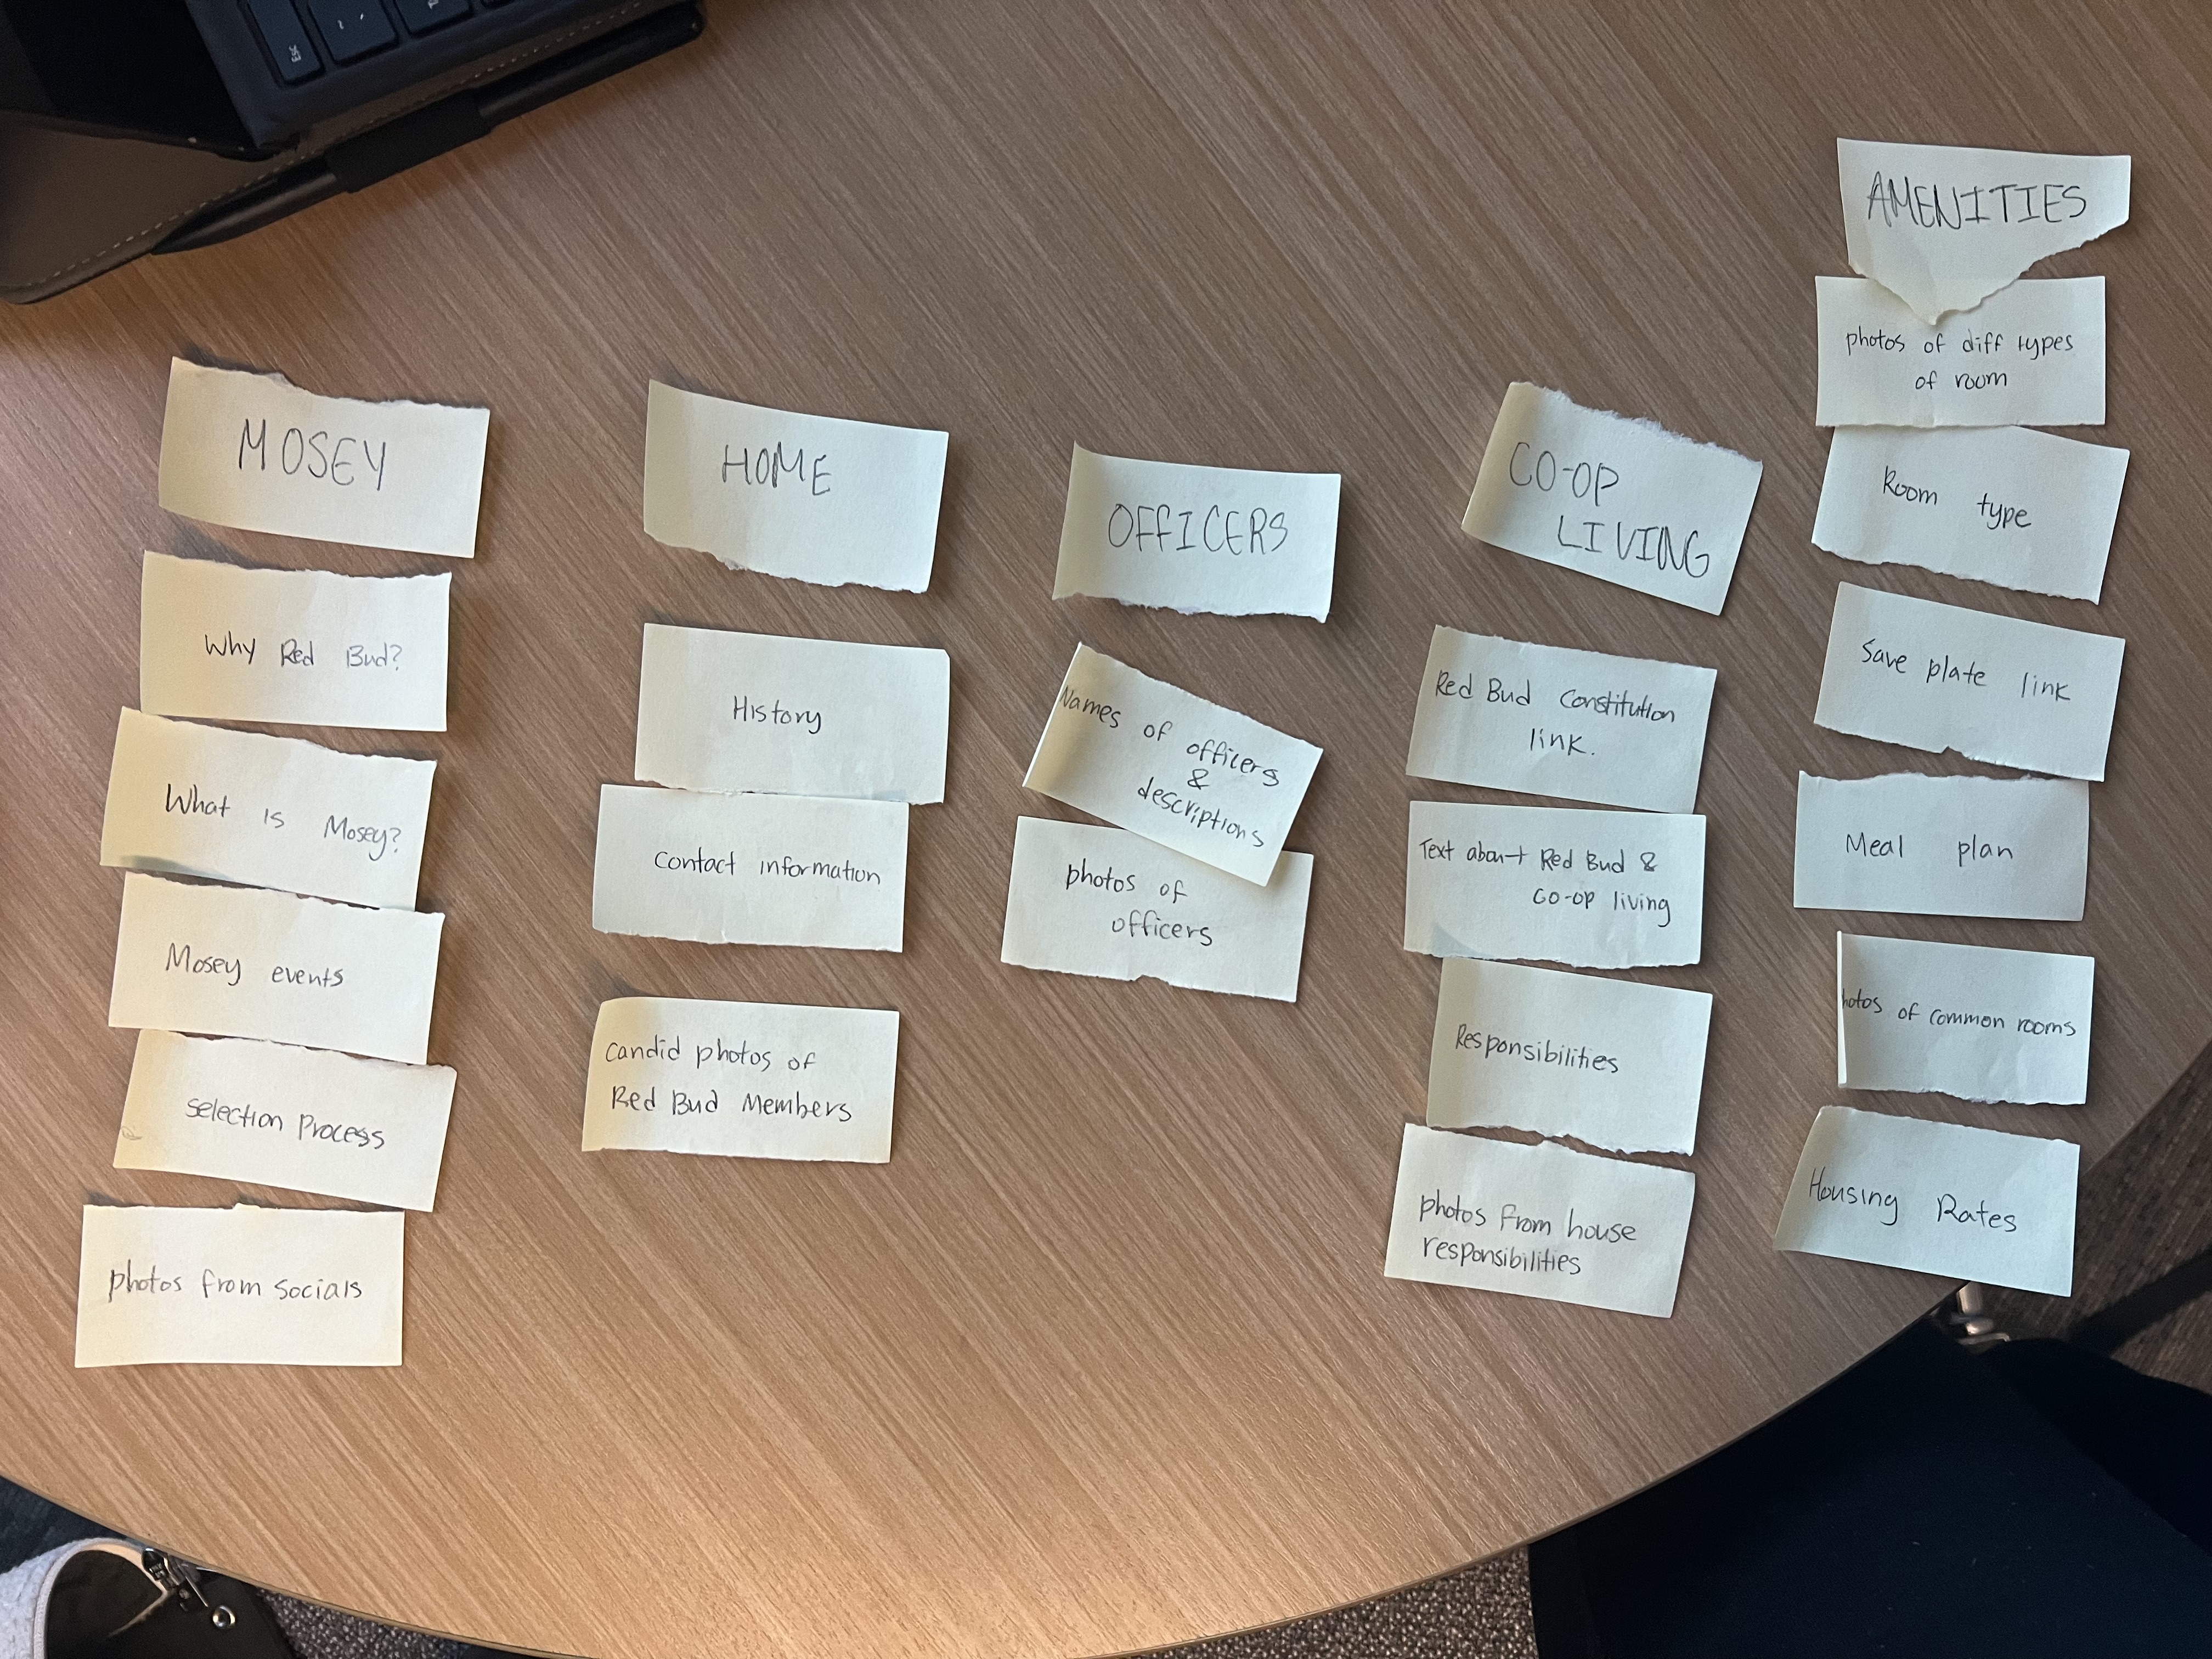 MOSEY
Why Red Bud?
What is Mosey?
Mosey events
Selection Process
photos from socials
HOME
History
Contact information
Candid photos of
Red Bud Members
OFFICERS
Names of officers
&
descriptions
photos of
officers
CO-OP
LIVING
Red Bud Constitution
link.
Text about Red Bud &
Co-op living
Responsibilities
photos from house
responsibilities
AMENITIES
photos of diff types
of room
Room type
Save plate link
Meal plan
hotos of common rooms
Housing Rates
ESC